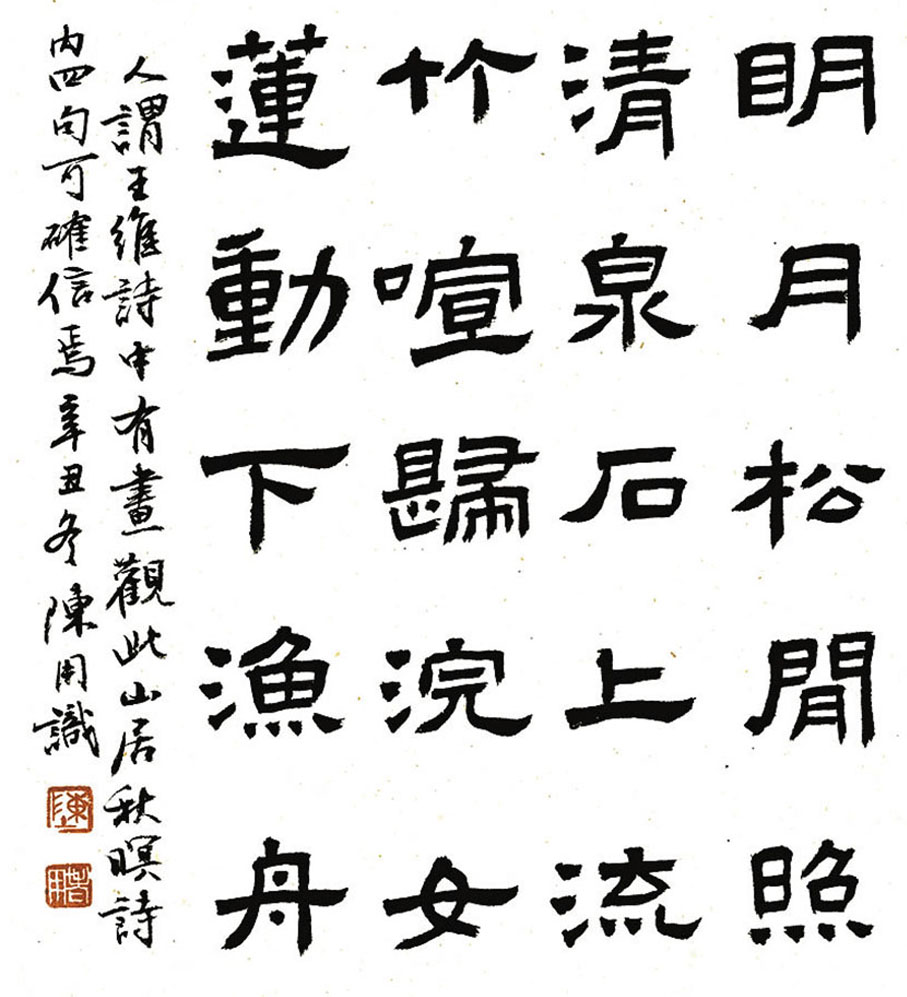 眀月松閒照
清泉石上流
竹喧歸浣女
蓮動下漁舟
人謂王維詩中有畫觀此山居秋暝詩
内四句可確信焉辛丑冬陳用識
陳